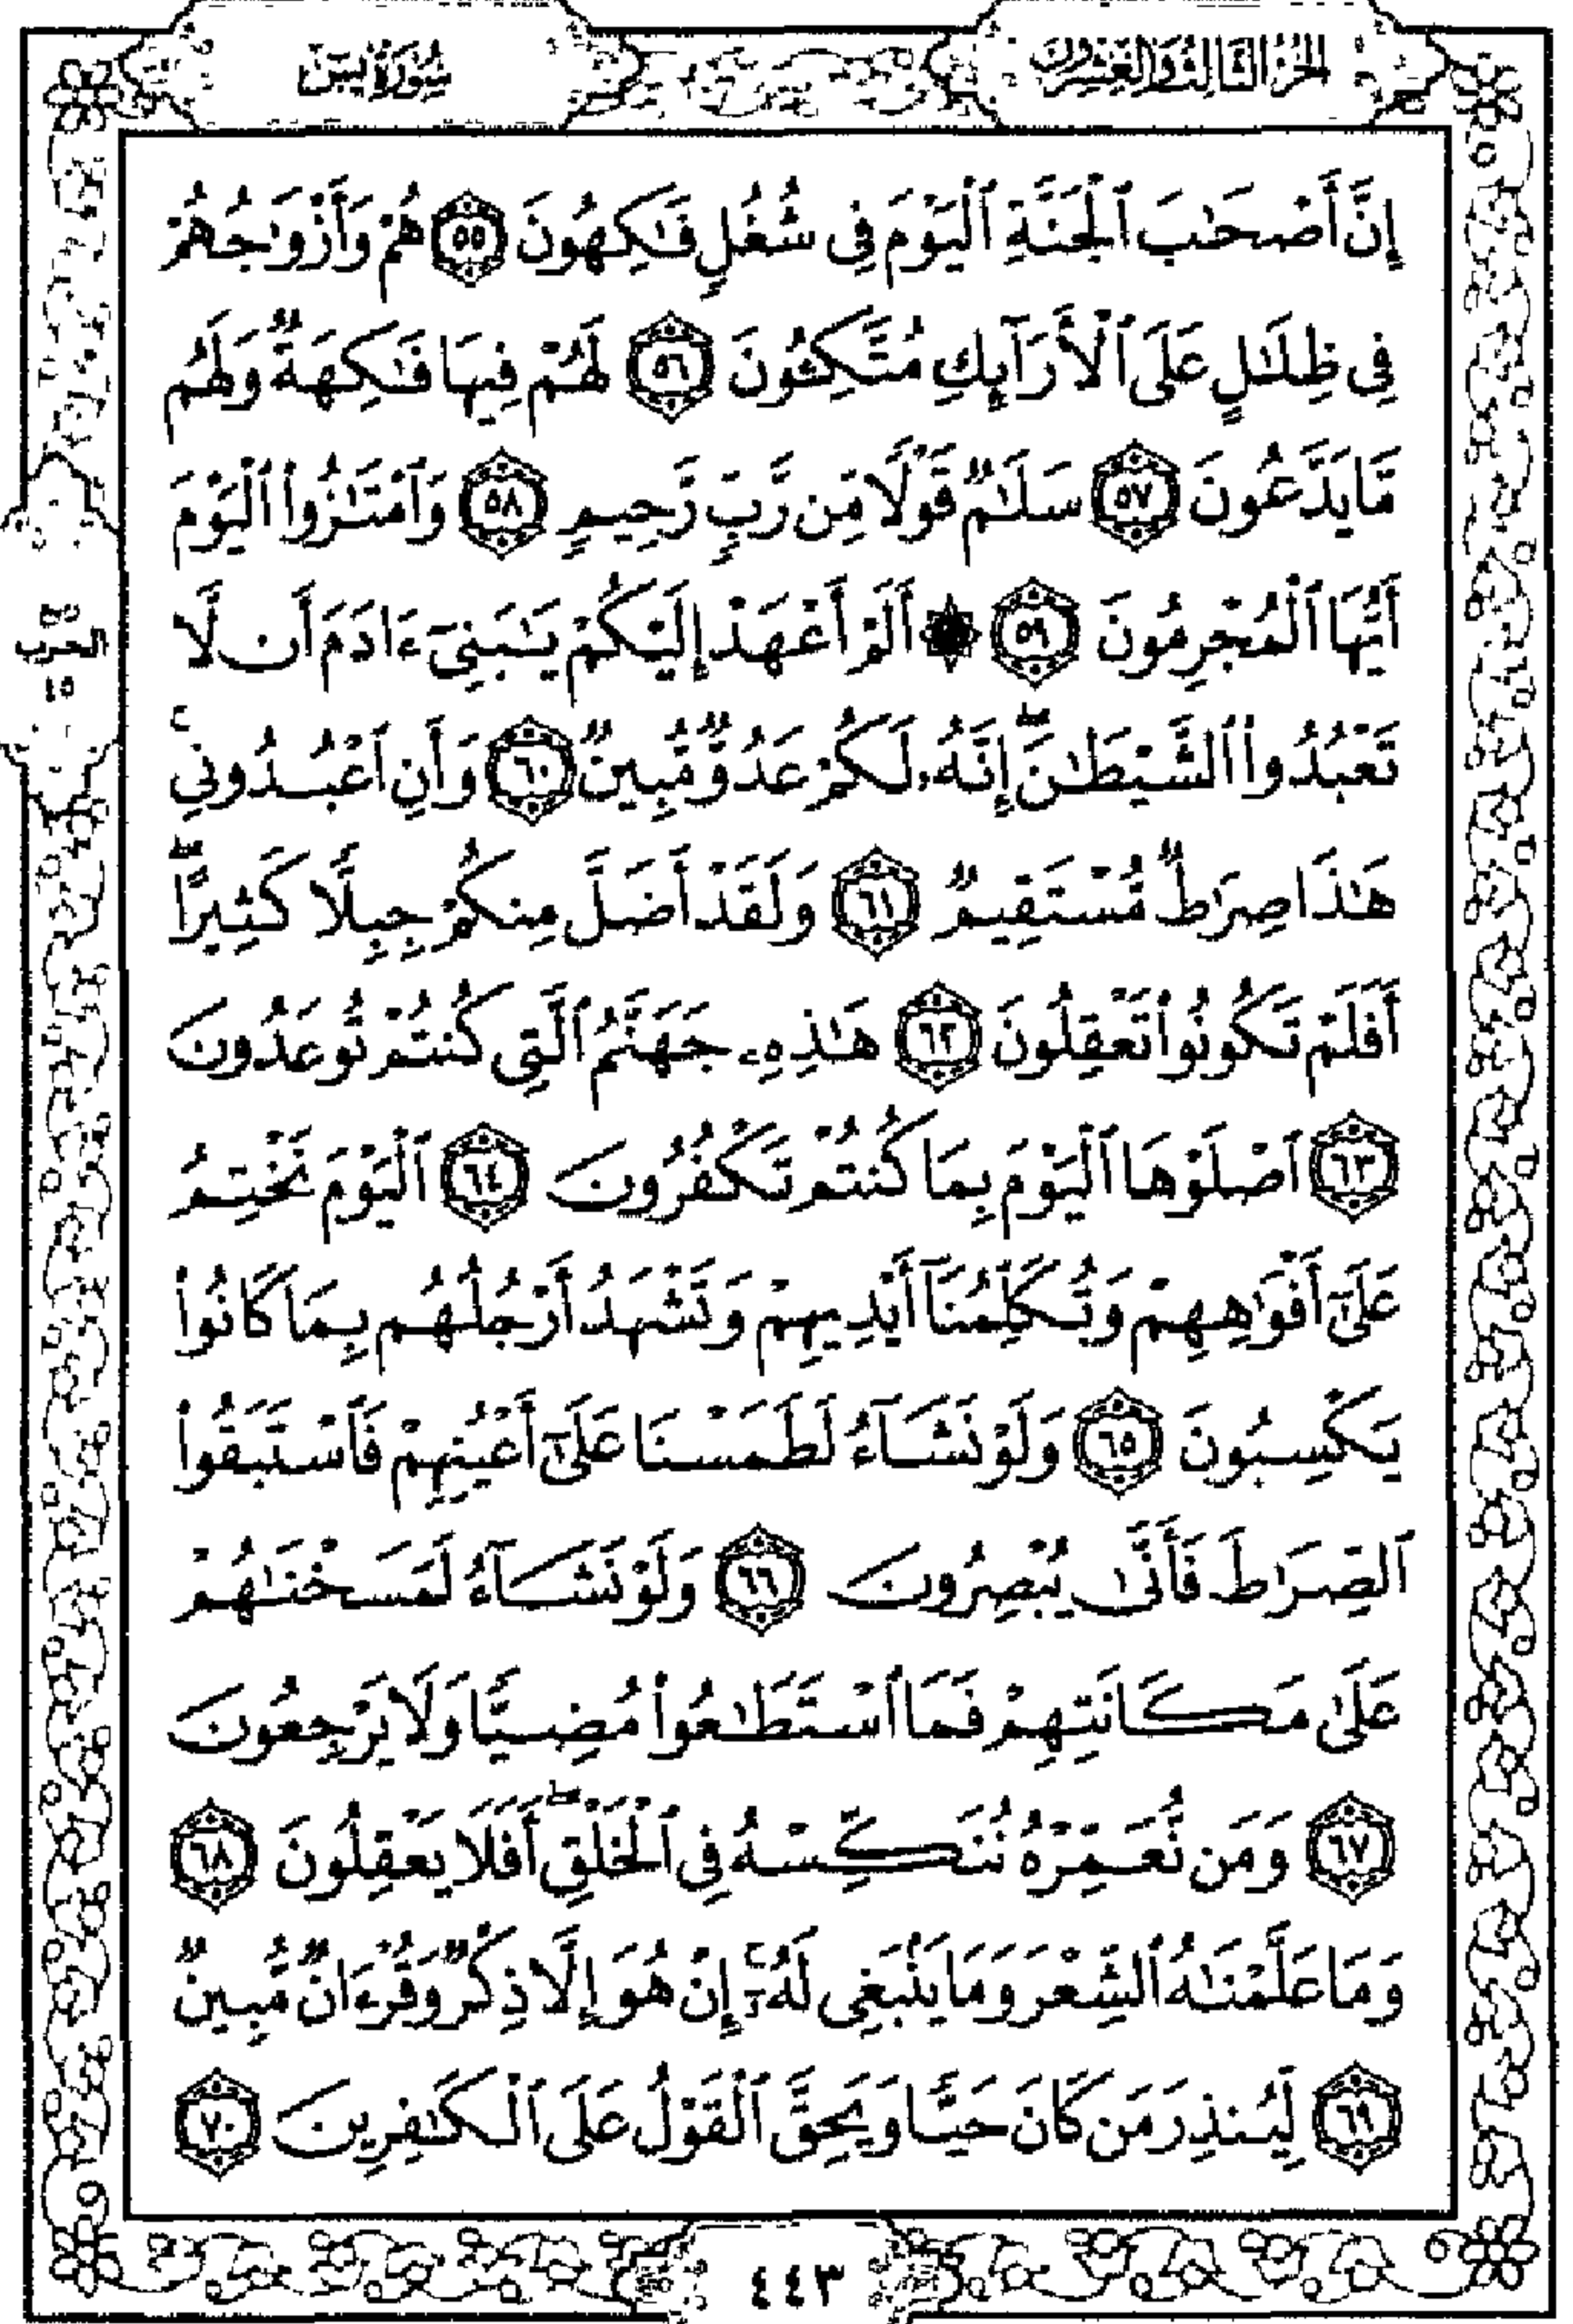 الجزء الثالث والعشرون
سورة يس
إِنَّ أَصْحَٰبَ ٱلْجَنَّةِ ٱلْيَوْمَ فِى شُغُلٍ فَٰكِهُونَ ٥٥ هُمْ وَأَزْوَٰجُهُمْ
فِى ظِلَٰلٍ عَلَى ٱلْأَرَآئِكِ مُتَّكِـُٔونَ ٥٦ لَهُمْ فِيهَا فَٰكِهَةٌ وَلَهُم
مَّا يَدَّعُونَ ٥٧ سَلَٰمٌ قَوْلًا مِّن رَّبٍّ رَّحِيمٍ ٥٨ وَٱمْتَٰزُوا۟ ٱلْيَوْمَ
أَيُّهَا ٱلْمُجْرِمُونَ ٥٩ ۞ أَلَمْ أَعْهَدْ إِلَيْكُمْ يَٰبَنِىٓ ءَادَمَ أَن لَّا
تَعْبُدُوا۟ ٱلشَّيْطَٰنَ ۖ إِنَّهُۥ لَكُمْ عَدُوٌّ مُّبِينٌ ٦٠ وَأَنِ ٱعْبُدُونِى ۚ
هَٰذَا صِرَٰطٌ مُّسْتَقِيمٌ ٦١ وَلَقَدْ أَضَلَّ مِنكُمْ جِبِلًّا كَثِيرًا ۖ
أَفَلَمْ تَكُونُوا۟ تَعْقِلُونَ ٦٢ هَٰذِهِۦ جَهَنَّمُ ٱلَّتِى كُنتُمْ تُوعَدُونَ
٦٣ ٱصْلَوْهَا ٱلْيَوْمَ بِمَا كُنتُمْ تَكْفُرُونَ ٦٤ ٱلْيَوْمَ نَخْتِمُ
عَلَىٰٓ أَفْوَٰهِهِمْ وَتُكَلِّمُنَآ أَيْدِيهِمْ وَتَشْهَدُ أَرْجُلُهُم بِمَا كَانُوا۟
يَكْسِبُونَ ٦٥ وَلَوْ نَشَآءُ لَطَمَسْنَا عَلَىٰٓ أَعْيُنِهِمْ فَٱسْتَبَقُوا۟
ٱلصِّرَٰطَ فَأَنَّىٰ يُبْصِرُونَ ٦٦ وَلَوْ نَشَآءُ لَمَسَخْنَٰهُمْ
عَلَىٰ مَكَانَتِهِمْ فَمَا ٱسْتَطَٰعُوا۟ مُضِيًّا وَلَا يَرْجِعُونَ
٦٧ وَمَن نُّعَمِّرْهُ نُنَكِّسْهُ فِى ٱلْخَلْقِ ۖ أَفَلَا يَعْقِلُونَ ٦٨
وَمَا عَلَّمْنَٰهُ ٱلشِّعْرَ وَمَا يَنۢبَغِى لَهُۥٓ ۚ إِنْ هُوَ إِلَّا ذِكْرٌ وَقُرْءَانٌ مُّبِينٌ
٦٩ لِّيُنذِرَ مَن كَانَ حَيًّا وَيَحِقَّ ٱلْقَوْلُ عَلَى ٱلْكَٰفِرِينَ ٧٠
الحزب
٤٥
٤٤٣